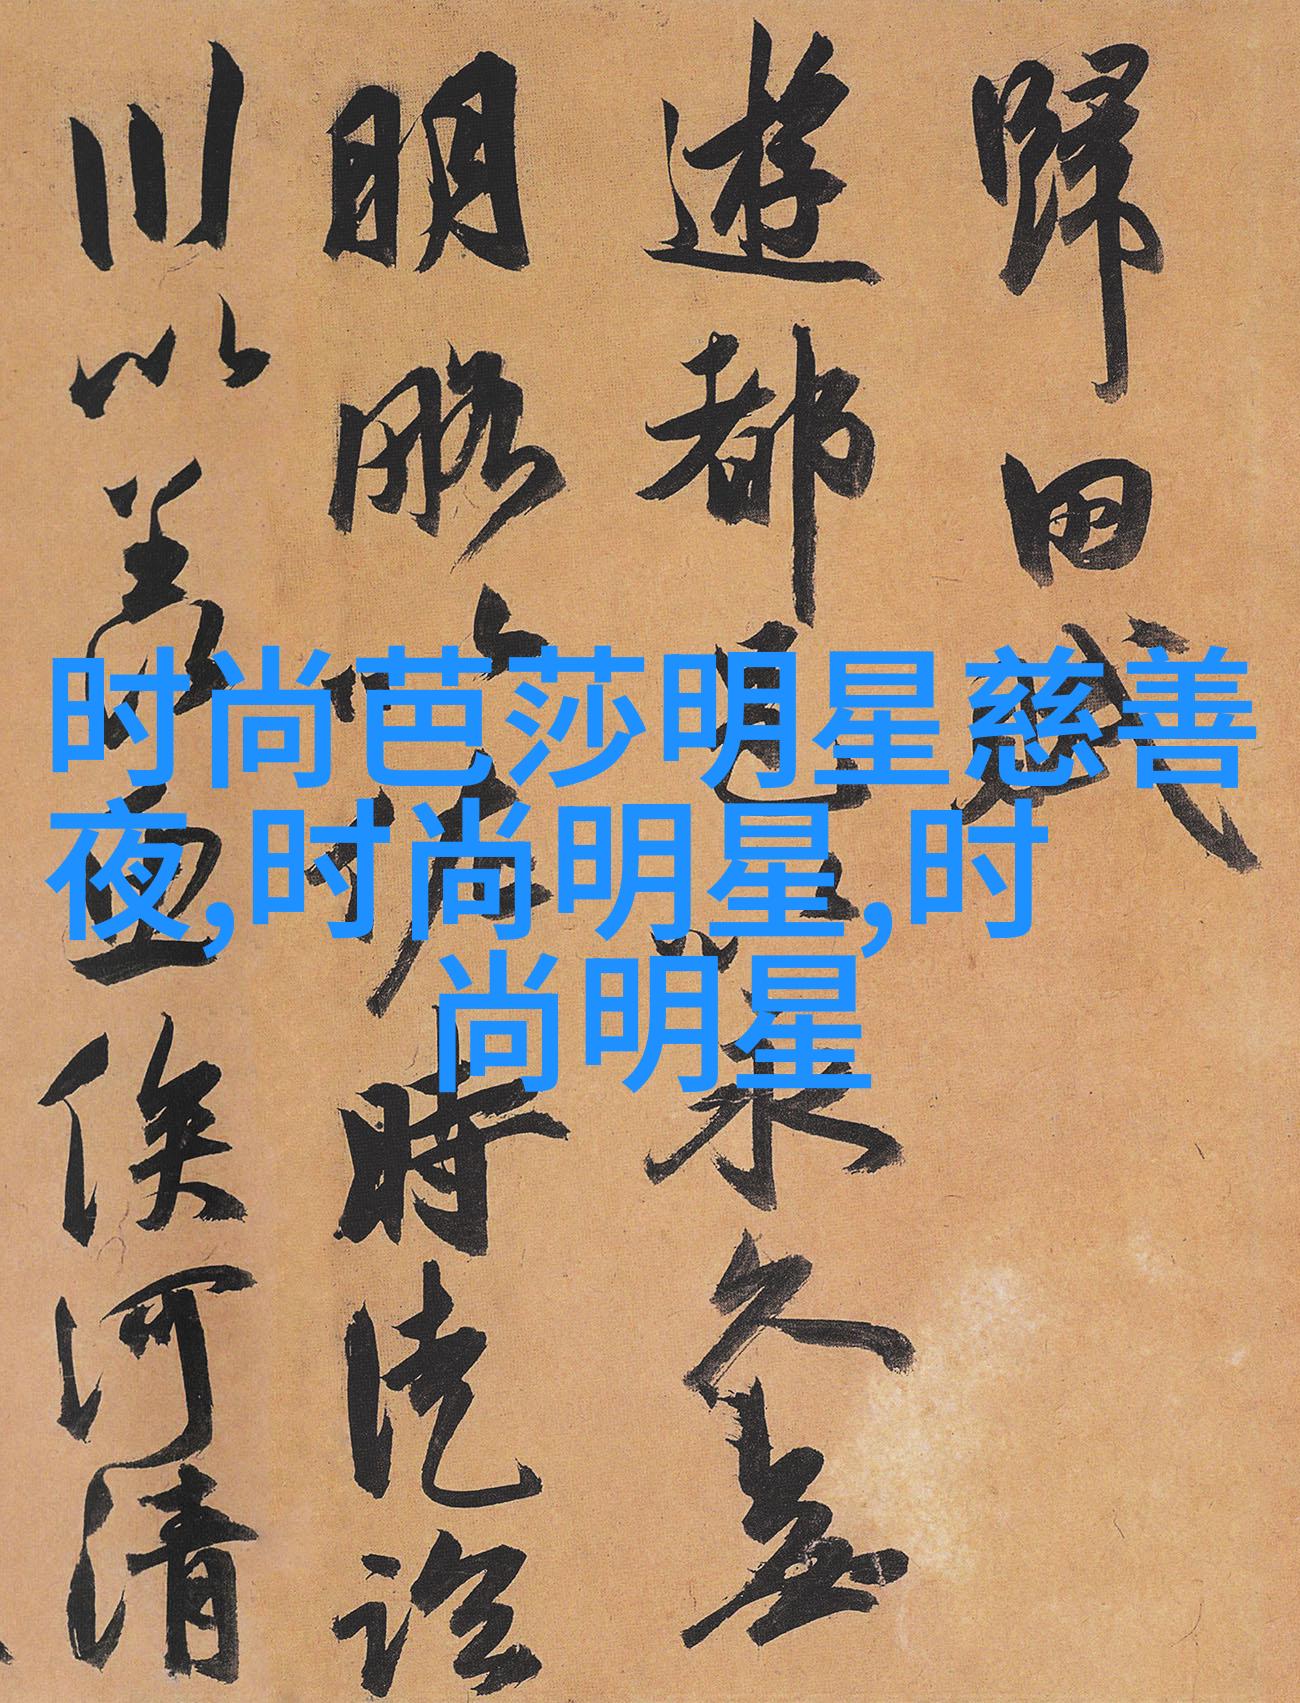 时尚芭莎明星慈善
夜,时尚明星,时
尚明星
歸田賦
遊都邑以永久無
明略以佐時徒臨
川以羨魚俟河清